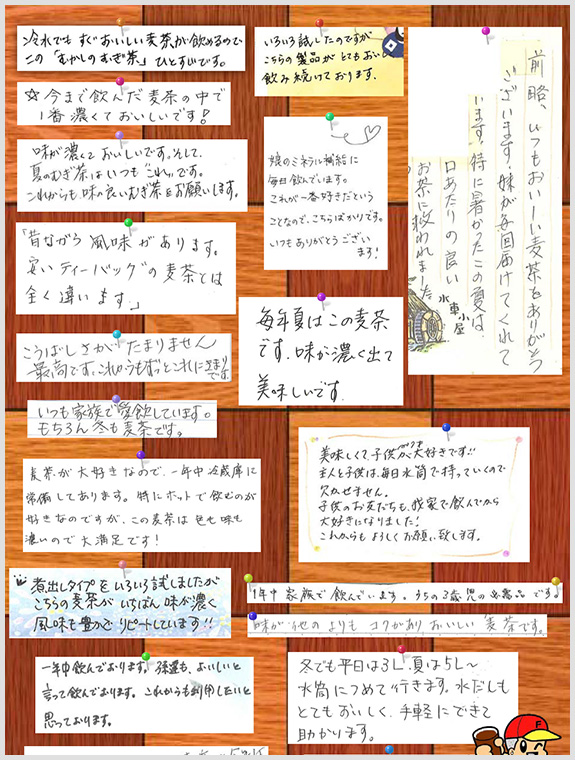 冷えてもすぐおいしい麦茶が飲めるので
この「むかしのむぎ茶」ひとすじです。
いろいろ試したのですが
こちらの製品がとてもおい
飲み続けております。
前略、いつもおいしい麦茶をありがとう
ございます。妹が毎回届けてくれて
います。特に暑かったこの夏は
口あたりの良い
お茶に救われました
水車小屋
☆今まで飲んだ麦茶の中で
1番濃くておいしいです!
味が濃くておいしいです。そして、
夏のむぎ茶はいつも「これ」です。
これからも、味の良いむぎ茶をお願いします。
娘のミネラル補給に
毎日飲んでいます。
これが一番好きだという
ことなので、こちらばかりです。
いつもありがとうござい
ます!
「昔ながら風味があります。
安いティーバッグの麦茶とは
全く違います。」
毎年夏はこの麦茶
です。味が濃く出て
美味しいです。
こうばしさがたまりません
最高です。これからもずっとこれに決まり
です。
いつも家族で愛飲しています。
もちろん冬も麦茶です。
美味しくて子供が大好きです!!
主人と子供は、毎日水筒で持っていくので
欠かせません。
子供のお友だちも、我家で飲んでから
大好きになりました!
これからもよろしくお願い致します。
麦茶が大好きなので、一年中冷蔵庫に
常備してあります。特にホットで飲むのが
好きなのですが、この麦茶は色も味も
濃いので大満足です!
煮出しタイプをいろいろ試しましたが
こちらの麦茶がいちばん味が濃く
風味も豊かでリピートしています!!
1年中家族で飲んでいます。うちの3歳児の必需品です
味が他のよりもコクがありおいしい麦茶です。
一年中飲んでおります。孫達も、おいしいと
言って飲んでおります。これからも利用したいと
思っております。
冬でも平日は3L、夏は5L〜
水筒につめて行きます。水だしも
とてもおいしく、手軽にできて
助かります。
F